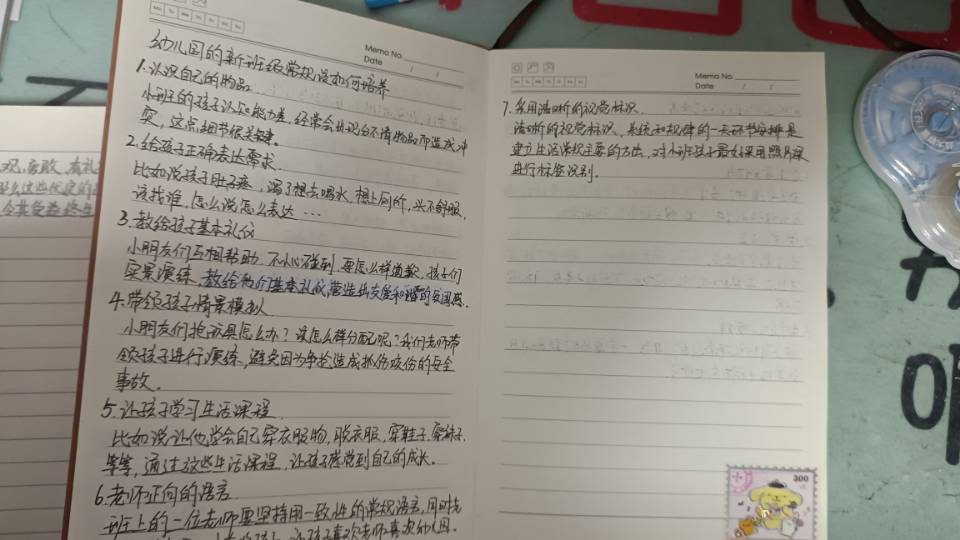 Memo No.
Date / /
幼儿园的新班级常规该如何培养
1.认识自己的物品
小班的孩子认知能力差,经常会出现分不清物品而造成冲
突,这点细节很关键。
2.给孩子正确表达需求
比如说孩子肚子疼,渴了想去喝水,想上厕所,头不舒服,
该找谁,怎么说怎么表达…
3.教给孩子基本礼仪
小朋友们互相帮助,不小心碰到,要怎么样道歉,孩子们
实景演练,教给他们基本礼仪,营造出友爱和谐的氛围感.
4.带领孩子情景模拟
小朋友们抢玩具怎么办?该怎么样分配呢?我们老师带
领孩子进行演练,避免因为争抢造成抓伤咬伤的安全
事故.
5.让孩子学习生活课程
比如说让他学会自己穿衣服物,脱衣服,穿鞋子,穿袜子,
等等,通过这些生活课程,让孩子感觉到自己的成长。
6.老师正向的语言
班上的一位老师要坚持用一致性的常规语言,同时先
让孩子喜欢老师喜欢幼儿园.
Memo No.
Date / /
7.采用清晰的视觉标识.
清晰的视觉标识、系统和规律的一天环节安排是
建立生活常规主要的方法,对小班孩子最好采用照片来
进行标签识别.
300